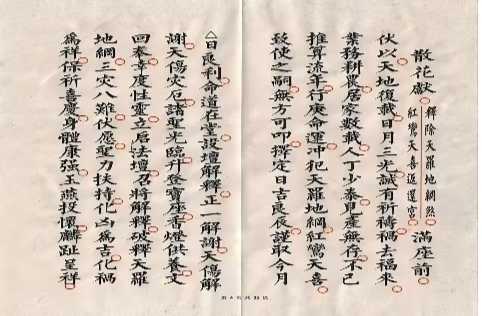 散花獻 釋除天羅地網煞 紅鸞天喜返還宮 滿座前
伏以天地復載日月三光誠有祈禱禍去福來
業務耕農居家數載人丁少泰見產無存不已
推算流年行庚命運冲犯天羅地網紅鸞天喜
致使之嗣無方可叩擇定日吉良夜謹取今月
△日良利命道在堂設壇解釋正一解謝天傷解
謝天傷灾厄諸聖光臨升登寶座香燈供養文
回奉幸度性靈立启法壇召將解釋破釋天羅
地網三灾八難伏愿聖力扶持化凶為吉化禍
為祥保祈喜慶身體康強玉燕投懷麟趾呈祥